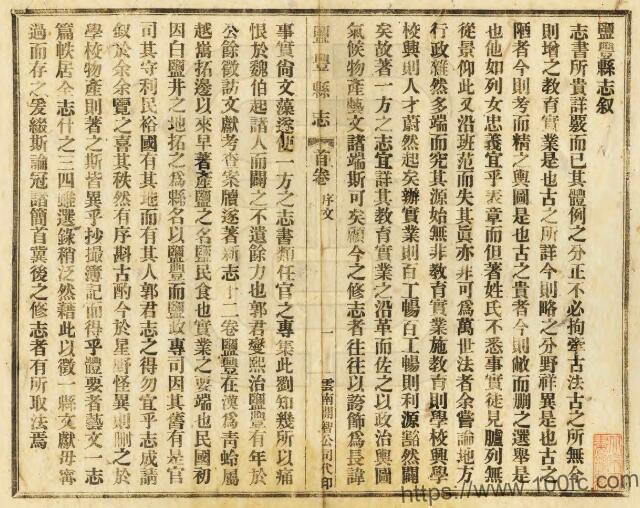 鹽豐縣志叙
志書所貴詳覈而已其體例之分正不必拘牽古法古之所無今
則增之教育實業是也古之所詳今則略之分野祥異是也古之
陋者今則考而精之輿圖是也古之貴者今則敝而刪之選舉是
也他如列女忠義宜乎表章而但著姓氏不悉事實徒見臚列無
從景仰此又沿班范而失其眞亦非可爲萬世法者余嘗論地方
行政雖然多端而究其源始無非教育實業施教育則學校興學
校興則人才蔚然起矣辦實業則百工暢百工暢則利源豁然闢
矣故著一方之志宜詳其教育實業之沿革而佐之以政治輿圖
氣候物產藝文諸端斯可矣顧今之修志者往往以誇飾爲長諱
鹽豐縣志
首卷
序文
一
雲南開智公司代印
事實尙文藻遂使一方之志書類任官之專集此劉知幾所以痛
恨於魏伯起諸人而闢之不遺餘力也郭君燮熙治鹽豐有年於
公餘徵訪文獻考查案牘遂著新志十二卷鹽豐在漢爲靑蛉屬
越嶲拓邊以來早著產鹽之名鹽民食也實業之要端也民國初
因白鹽井之地拓之爲縣名以鹽豐而鹽政專司因其舊有是官
司其守利民裕國有其地而有其人郭君志之得勿宜乎志成請
叙於余余覽之喜其秩然有序斟古酌今於星野怪異則刪之於
學校物產則著之斯皆異乎抄撮簿記而得乎體要者藝文一志
篇帙居全志什之三四雖選錄稍泛然藉此以徵一縣文獻毋寧
過而存之爰綴斯論冠諸簡首冀後之修志者有所取法焉
https://www.100fc.com